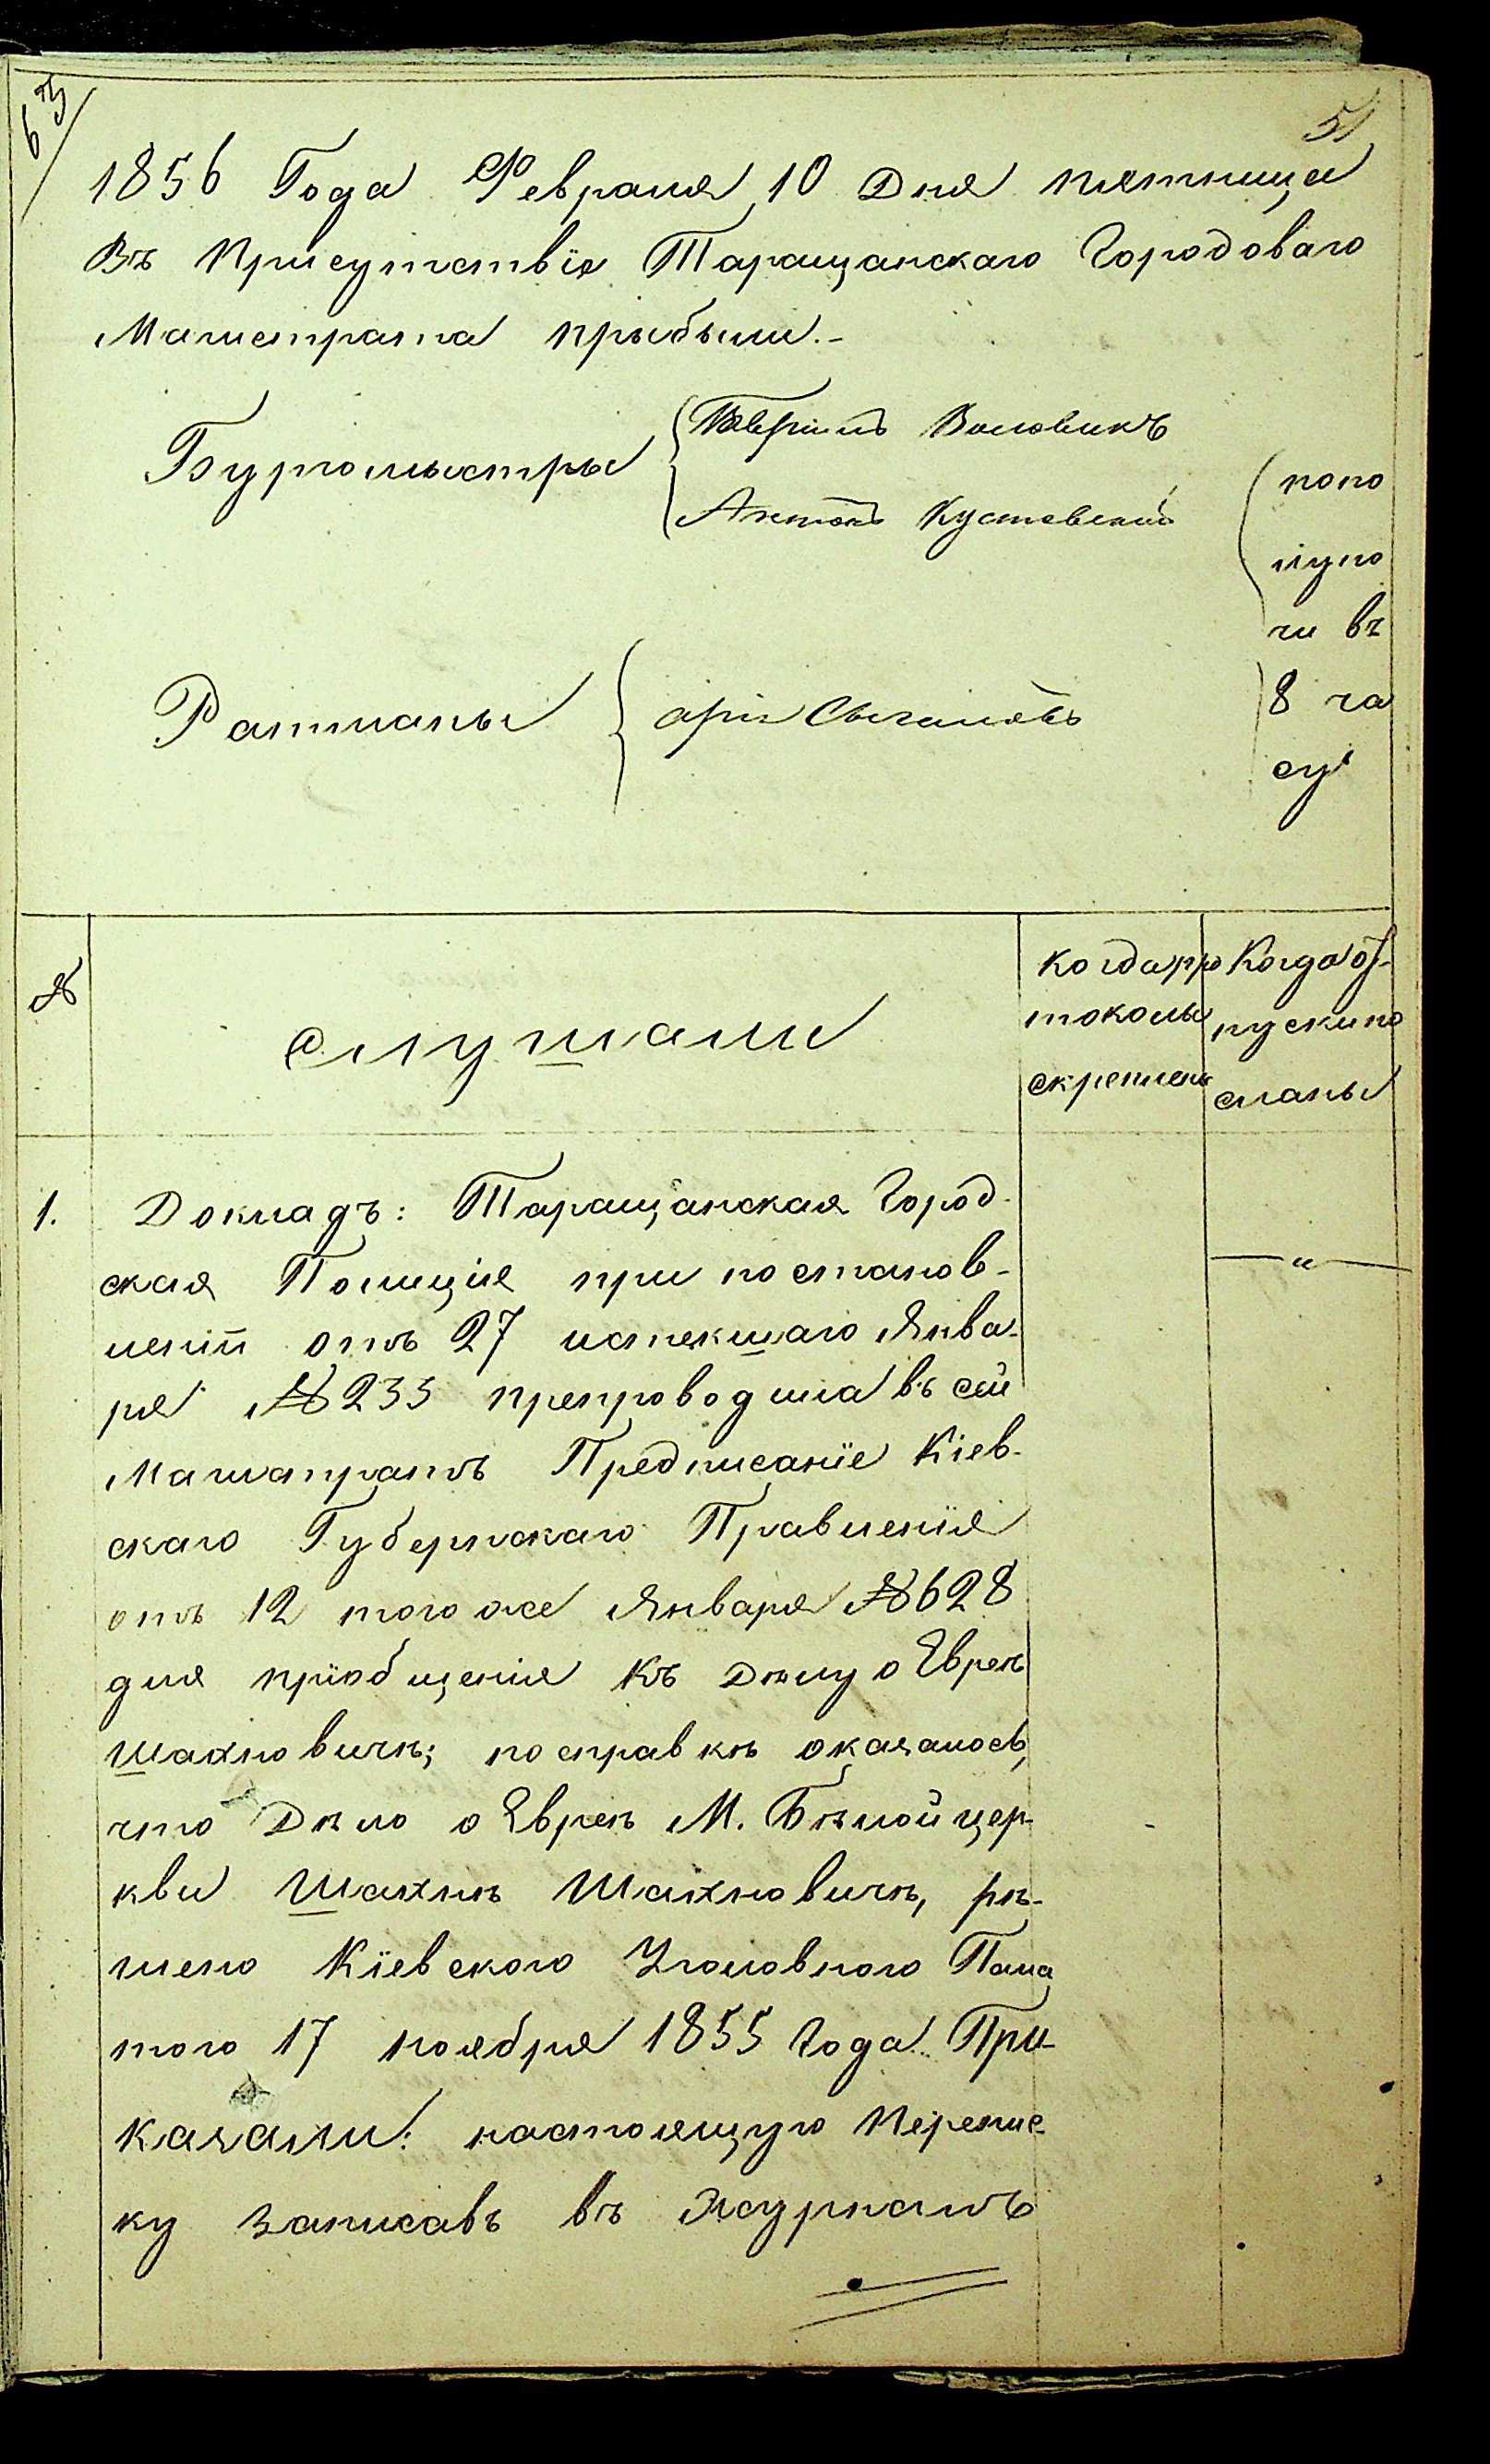 63
51
1856 Года Февраля 10 Дня пятница
Въ Присутствіе Таращанскаго Городоваго
Магистрата прыбыли.-
Бургомыстры
Воловикъ
Антонъ Кустовскій
попо
лупо
чи въ
8 ча
су
Ратманы
№
слушали
когда про
токолы
скреплены
Когда от-
пуски по
сланы
1. Докладъ: Таращанская Город-
ская Полиція при постанов-
леніи отъ 27 истекшаго Янва-
ря № 235 препроводила въ сей
Магистратъ Предписаніе Кіев-
скаго Губернскаго Правленія
отъ 12 того же Января № 628
для пріобщенія къ Делу о Евреѣ
Шахновичѣ; посправкѣ оказалось,
что Дѣло о Евреѣ М. Бѣлой цер-
кви Шахнѣ Шахновичѣ, рѣ-
шено Кіевского Уголовного Пала
тою 17 ноября 1855 Года. При-
казали: настоящую Перепис-
ку записавъ въ журналъ